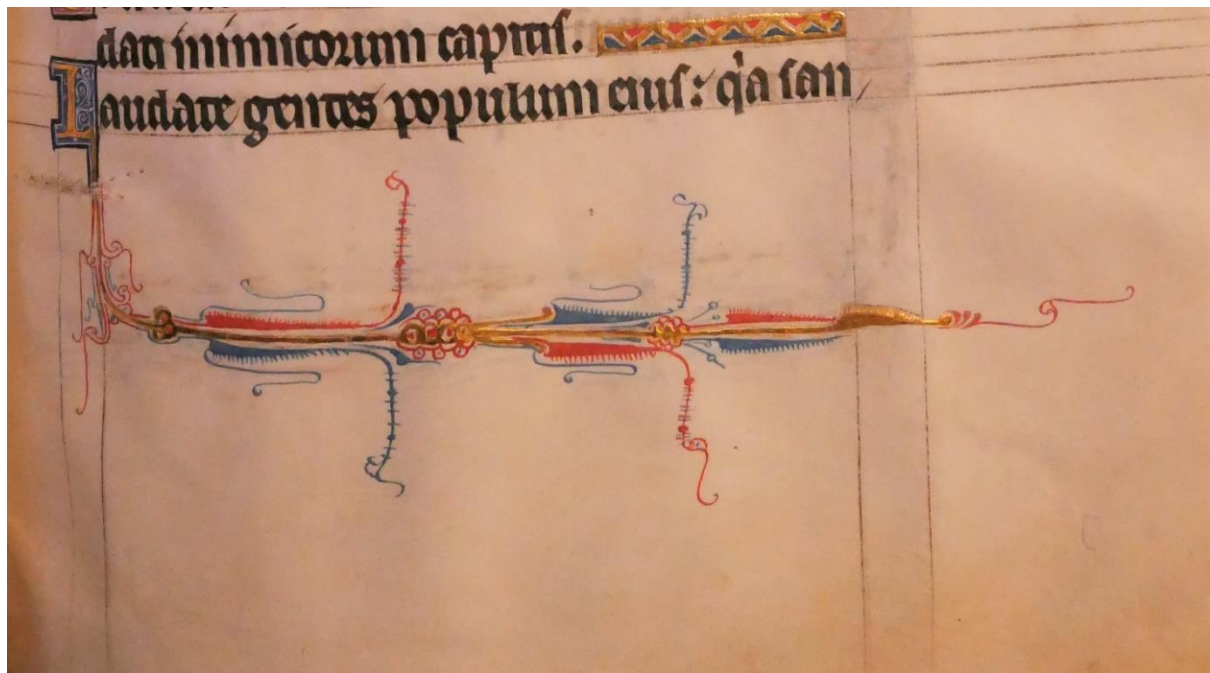 dati inimicorum capitis.
Laudate gentes populum eius: q'a san